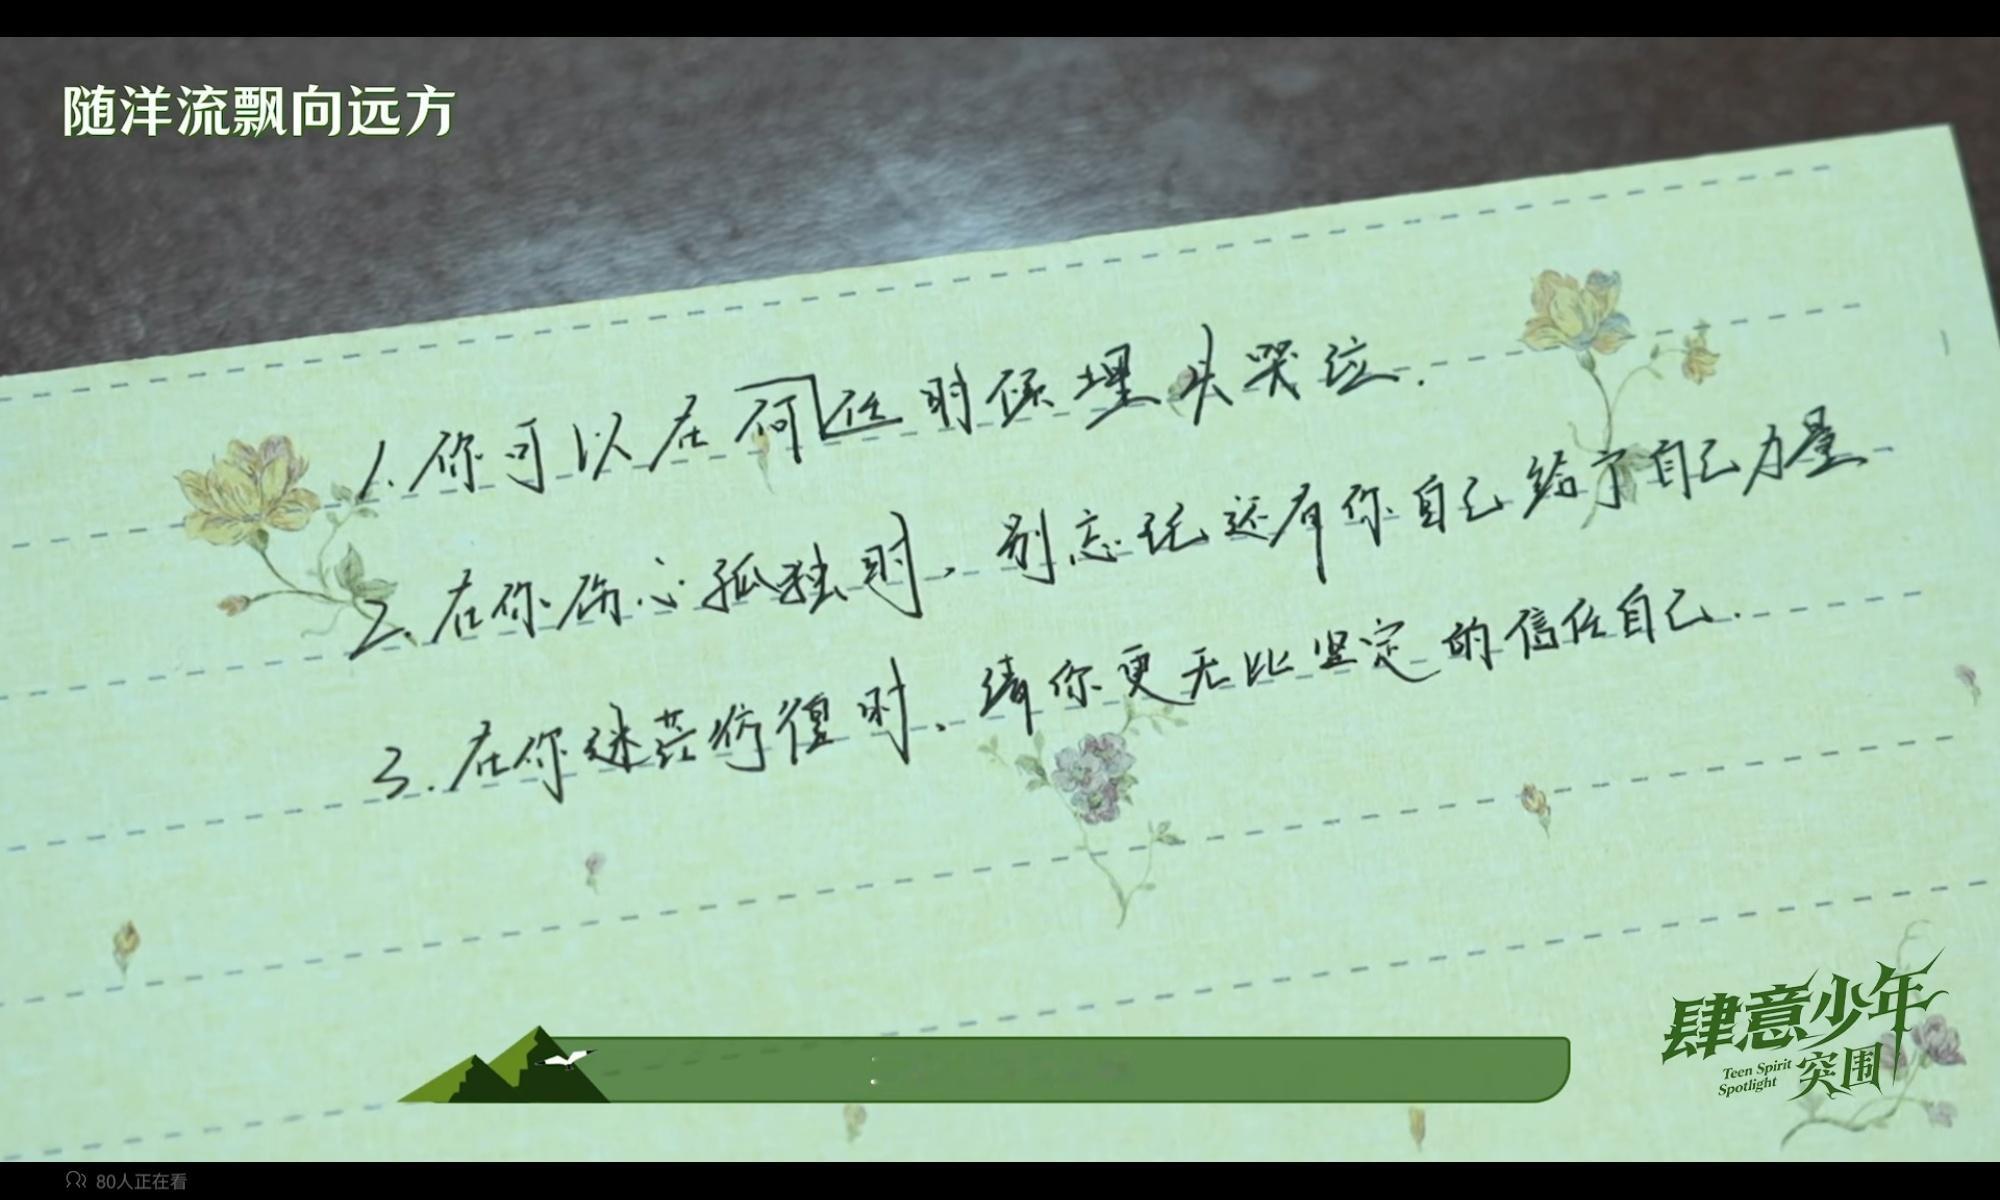 随洋流飘向远方
1.你可以在何任时候埋头哭泣.
2.在你伤心孤独时,别忘记还有你自己给予自己力量
3.在你迷茫彷徨时、请你更无比坚定的信任自己.
肆意少年
Teen Spirit
Spotlight
突围
80人正在看